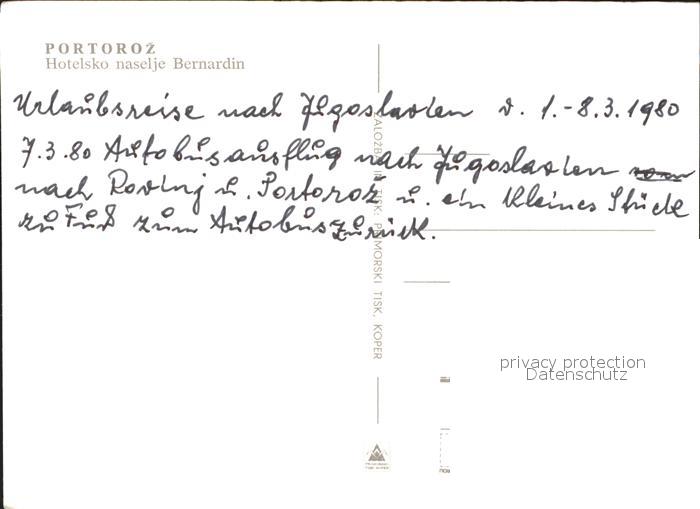 PORTOROŽ
Hotelsko naselje Bernardin
Urlaubsreise nach Jugoslavien v. 1.-8.3.1980
7.3.80 Autobusausflug nach Jugoslavien
nach Rovinj u. Portorož u. ein kleines Stück
zu Fuß zum Autobus zurück.
ZALOŽBA IN TISK: PRIMORSKI TISK, KOPER
privacy protection
Datenschutz